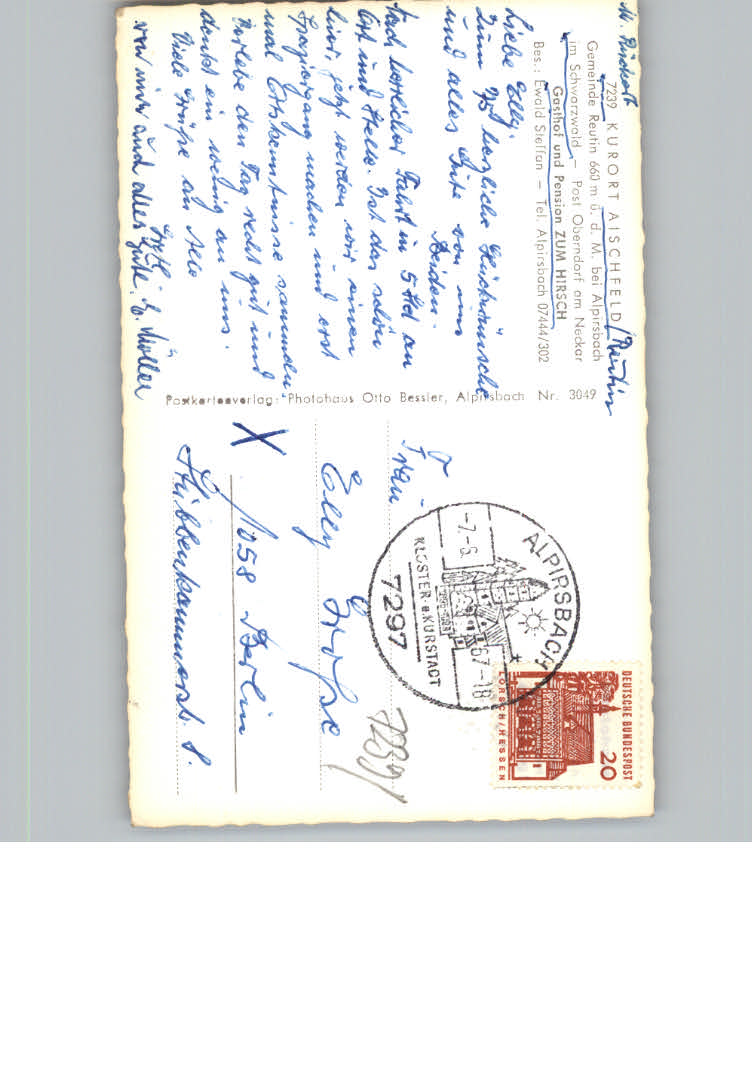 7239 KURORT AISCHFELD / Reutin
Gemeinde Reutin 660 m ü. d. M. bei Alpirsbach
im Schwarzwald — Post Oberndorf am Neckar
Gasthof und Pension ZUM HIRSCH
Bes.: Ewald Steffan — Tel. Alpirsbach 07444/302
Liebe Elly.
Zum 75 herzliche Glückwünsche
und alles Gute von uns
Beiden.
Nach herrlicher Fahrt in 5 Std an
Ort und Stelle. Ist das schön
hier, jetzt werden wir einen
Spaziergang machen und erst
mal Ortskenntnisse sammeln.
Verlebe den Tag recht gut und
denkt ein wenig an uns.
Viele Grüße an Alle
von mir auch alles Gute. E. Müller
Postkartenverlag: Photohaus Otto Bessler, Alpirsbach Nr. 3049
Frau
Elly Große
1058 Berlin
Stubbenkammerstr. 8.
7239
ALPIRSBACH
-7.-6. 67-18
KLOSTER- u. KURSTADT
7297
DEUTSCHE BUNDESPOST
20
LORSCH/HESSEN